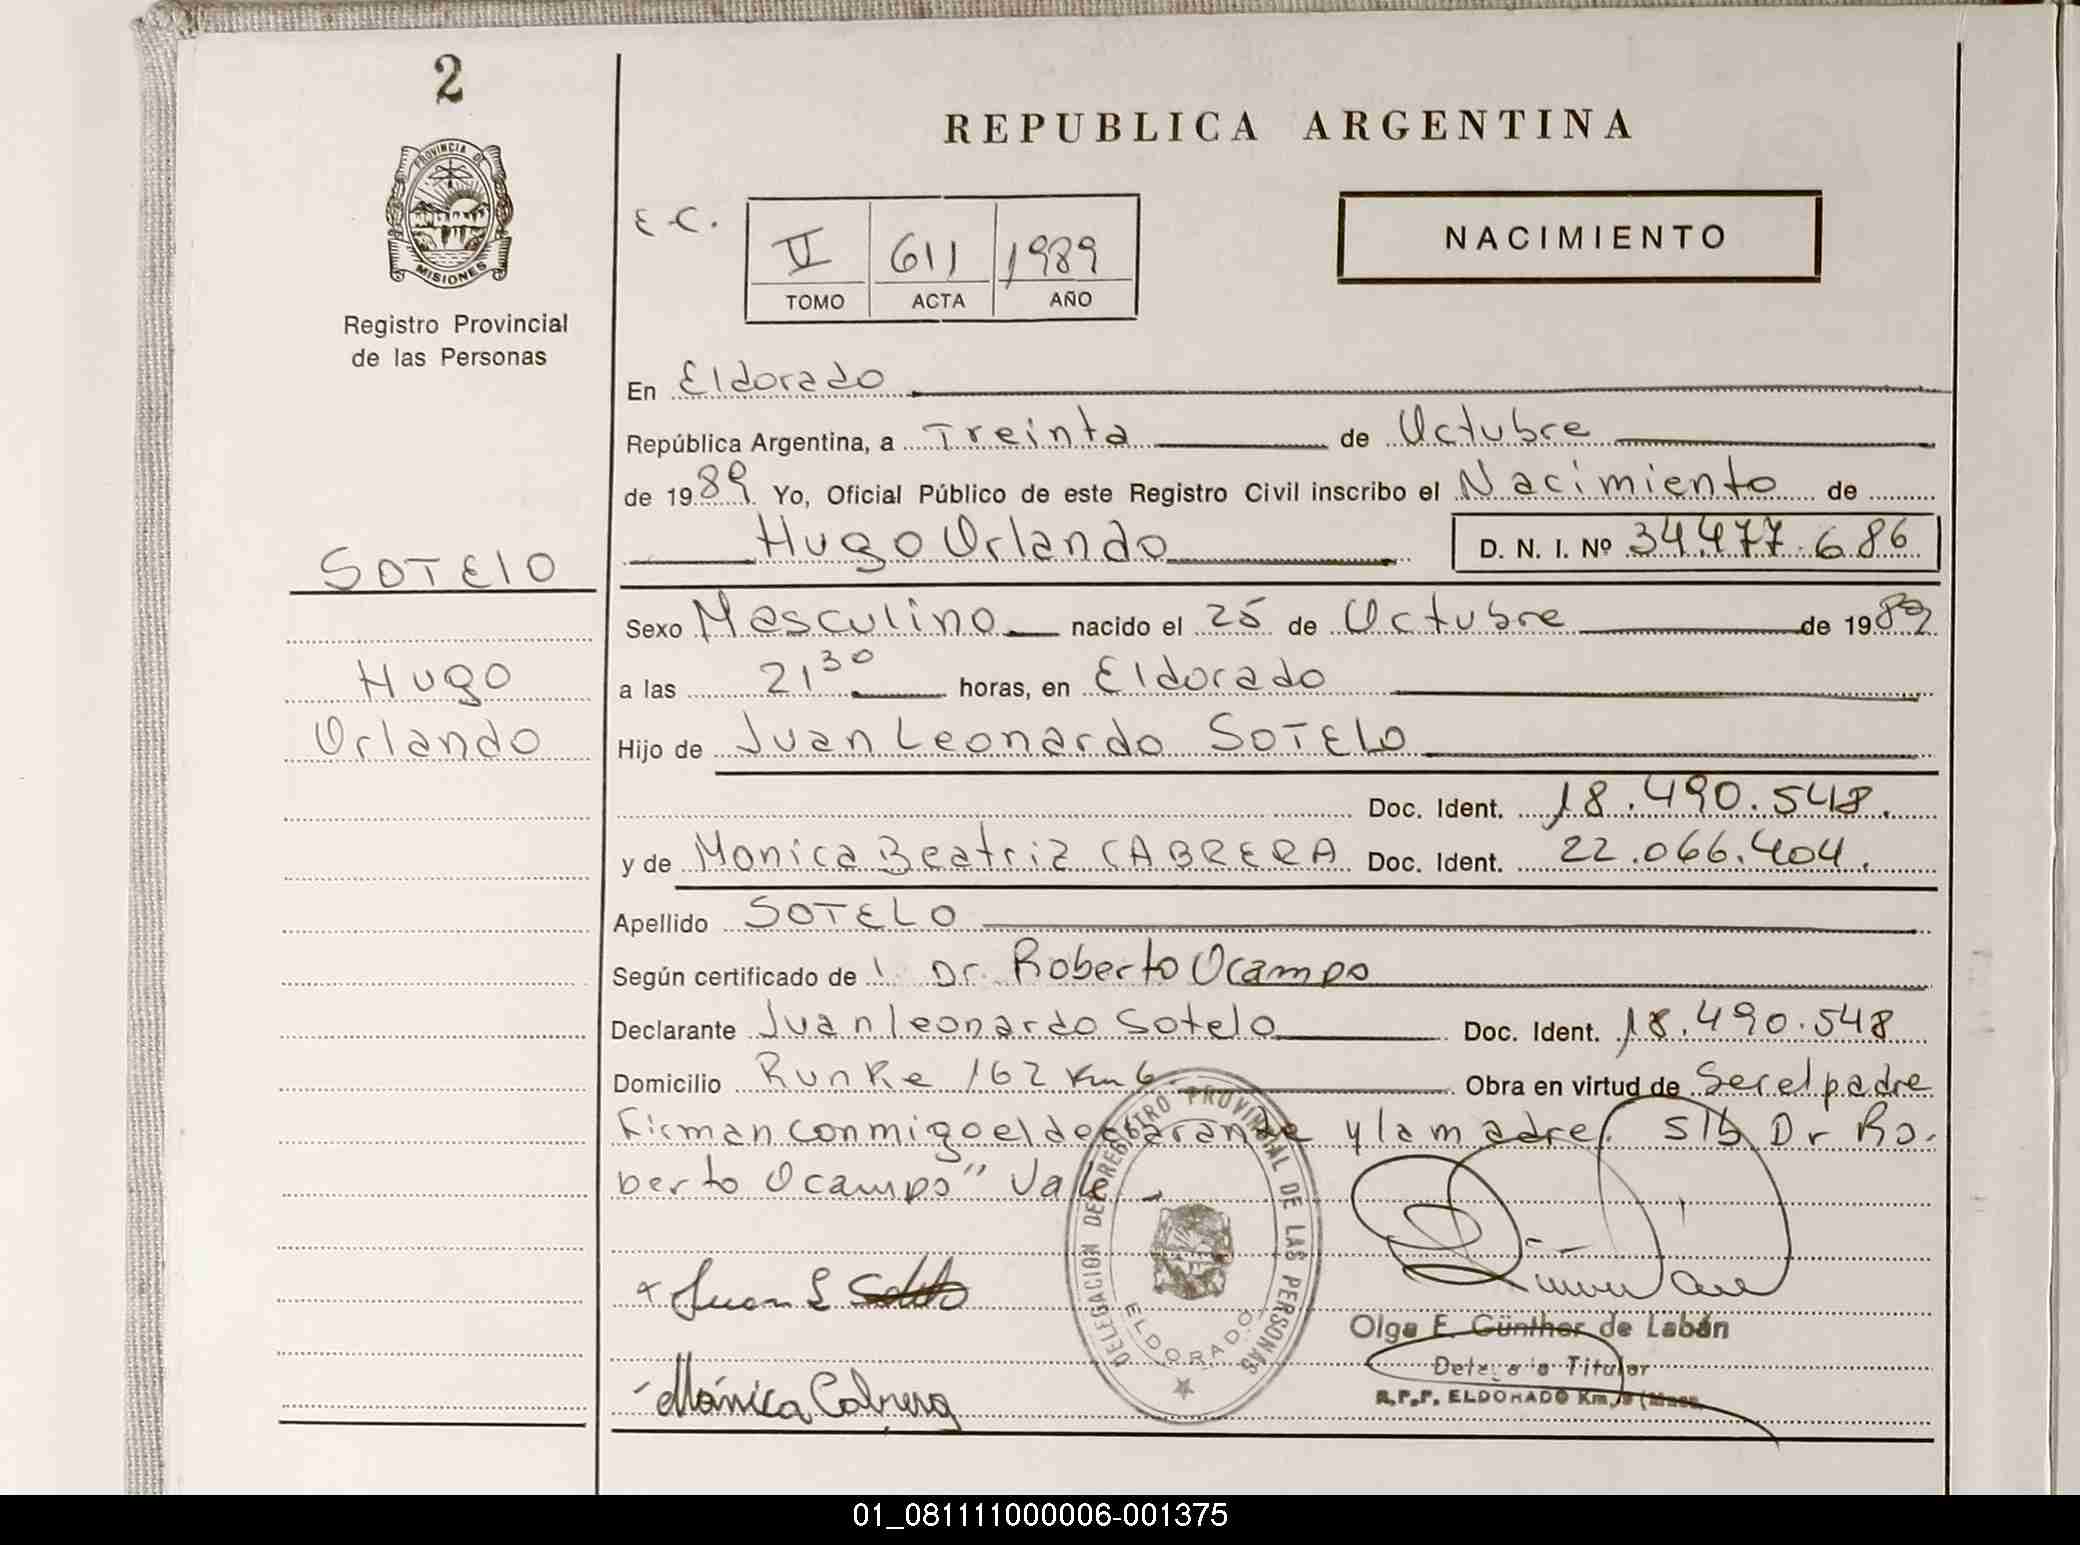 2
REPUBLICA ARGENTINA
PROVINCIA DE
MISIONES
Registro Provincial
de las Personas
E.C.
V 611 1989
TOMO ACTA AÑO
NACIMIENTO
En Eldorado
República Argentina, a Treinta de Octubre
de 1989. Yo, Oficial Público de este Registro Civil inscribo el Nacimiento de
Hugo Orlando D. N. I. Nº 34.477.686
SOTElO
Hugo
Orlando
Sexo Masculino nacido el 25 de Octubre de 1989
a las 21 30 horas, en Eldorado
Hijo de Juan Leonardo SOTELO
Doc. Ident. 18.490.548.
y de Monica Beatriz CABRERA Doc. Ident. 22.066.404.
Apellido SOTELO
Según certificado de Dr. Roberto Ocampo
Declarante Juan leonardo Sotelo Doc. Ident. 18.490.548
Domicilio RunKe 162 Km 6 Obra en virtud de Ser el padre
Firman conmigo el declarante y la madre. S/b Dr Ro.
berto Ocampo" Vale
DELEGACION DEL REGISTRO PROVINCIAL DE LAS PERSONAS
ELDORADO
Juan L Sotelo
Mónica Cabrera
Olga E. Günther de Labán
Delegada Titular
R.P.P. ELDORADO Km.
01_081111000006-001375